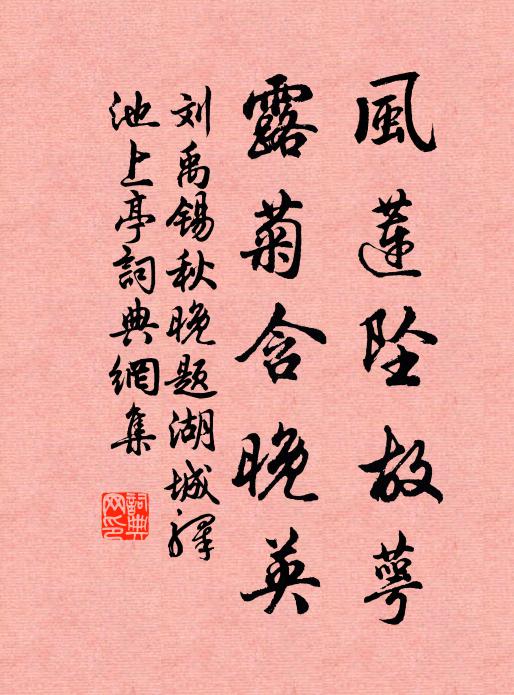 風蓮坠故萼
露菊含晚英
刘禹锡秋晚题湖城驿
池上亭詞典網集
詞典
网印